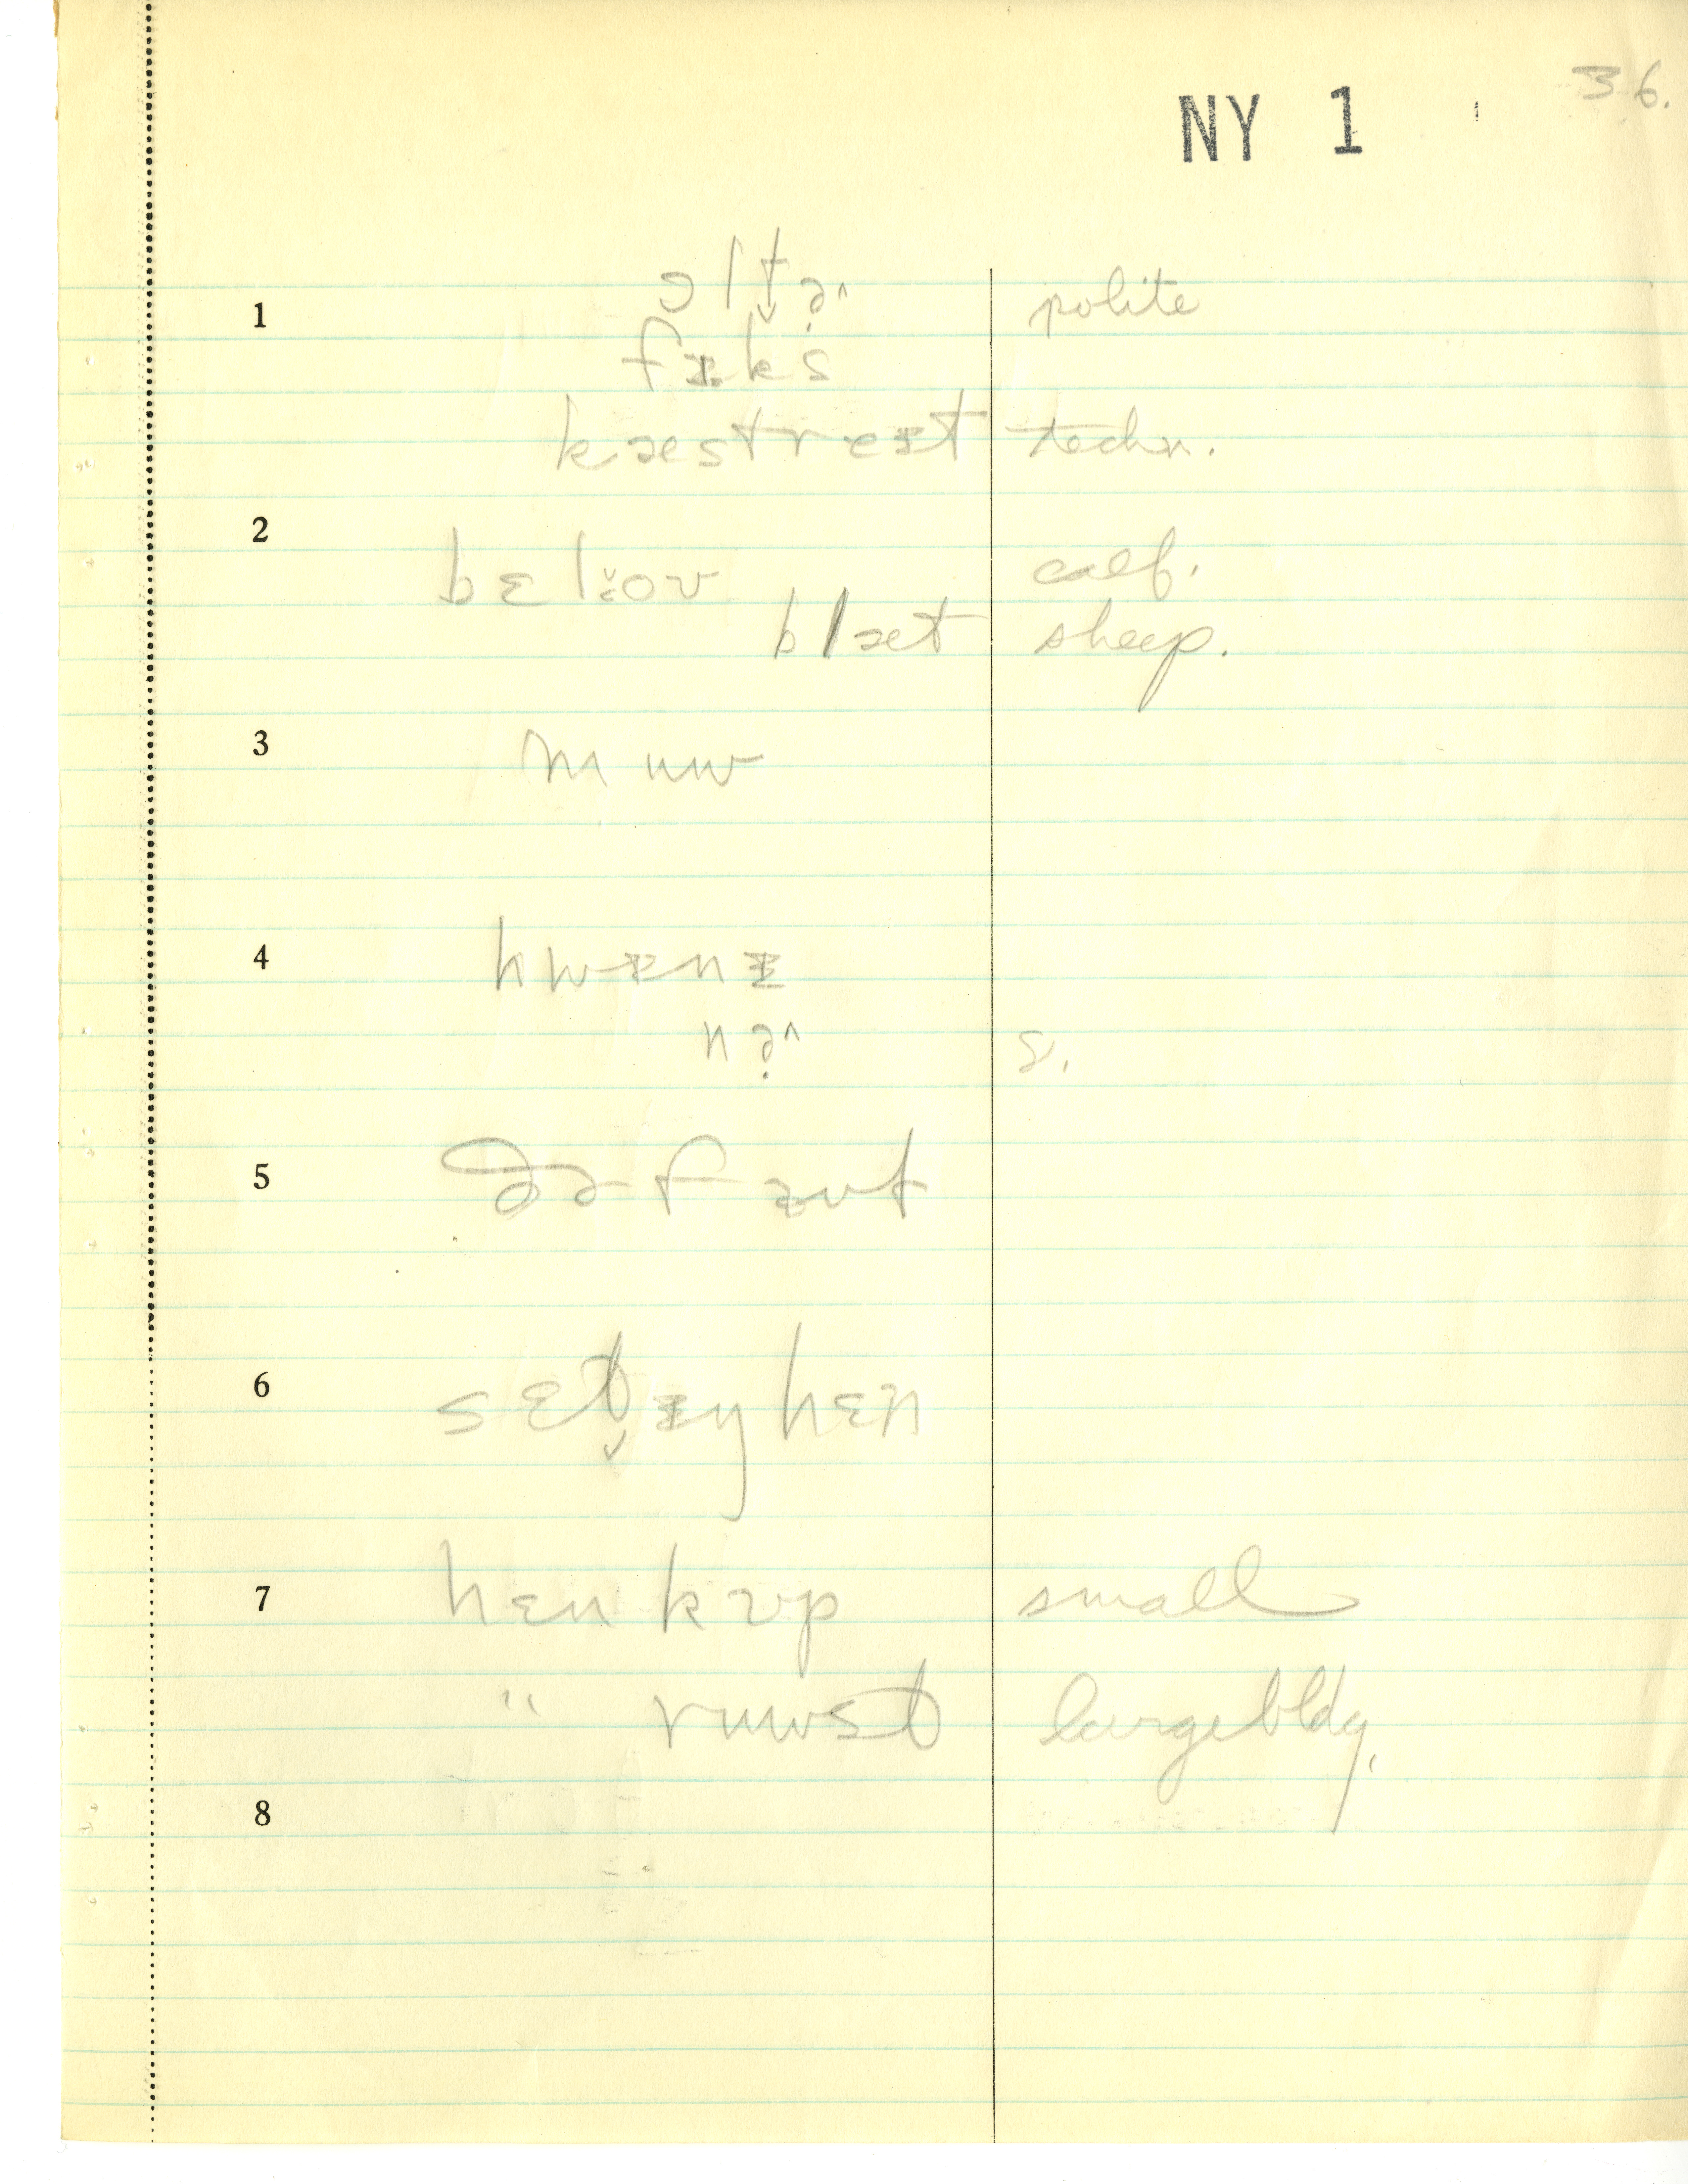 36.
NY 1
1 ɔltə̣^ polite
fɪks
kæstreɪt techn.
2 bɛl:oʊ calf.
blæt sheep.
3 muw
4 hwɪnɪ
nə̣^ s.
5 ðə faʊt
6 sɛt̬ɪŋ hɛn
7 hɛn kʊp small
" ruwst large bldg.
8